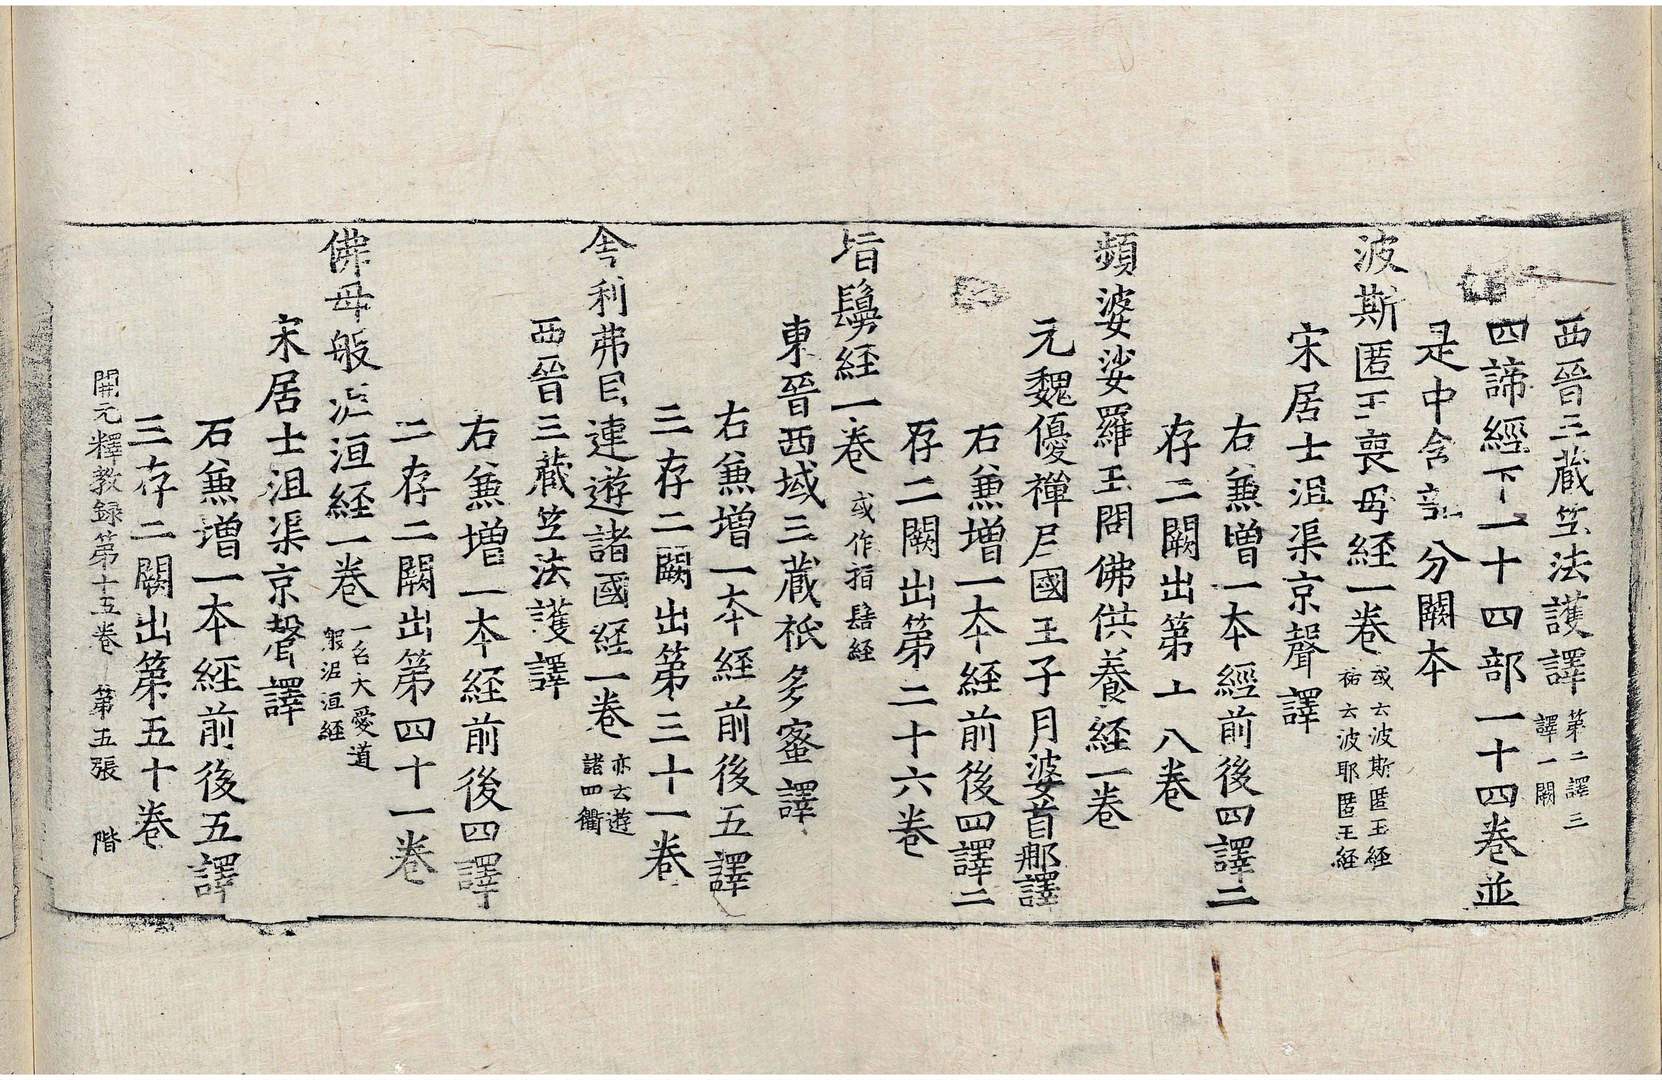 西晉三藏竺法護譯 第二譯三譯一闕
四諦經下一十四部一十四卷並
是中含部分闕本
波斯匿王喪母経一卷 或云波斯匿王経祐云波耶匿王経
宋居士沮渠京聲譯
右兼增一本經前後四譯二
存二闕出第十八卷
頻婆娑羅王問佛供養経一卷
元魏優禪尼國王子月婆首那譯
右兼增一本経前後四譯二
存二闕出第二十六卷
指鬘経一卷 或作指髻経
東晉西域三藏祇多蜜譯
右兼增一本経前後五譯
三存二闕出第三十一卷
舍利弗目連遊諸國経一卷 亦云遊諸四衢
西晉三藏竺法護譯
右兼增一本経前後四譯
二存二闕出第四十一卷
佛母般泥洹経一卷 一名大愛道般泥洹経
宋居士沮渠京聲譯
右兼增一本経前後五譯
三存二闕出第五十卷
開元釋教録第十五卷 第五張 階